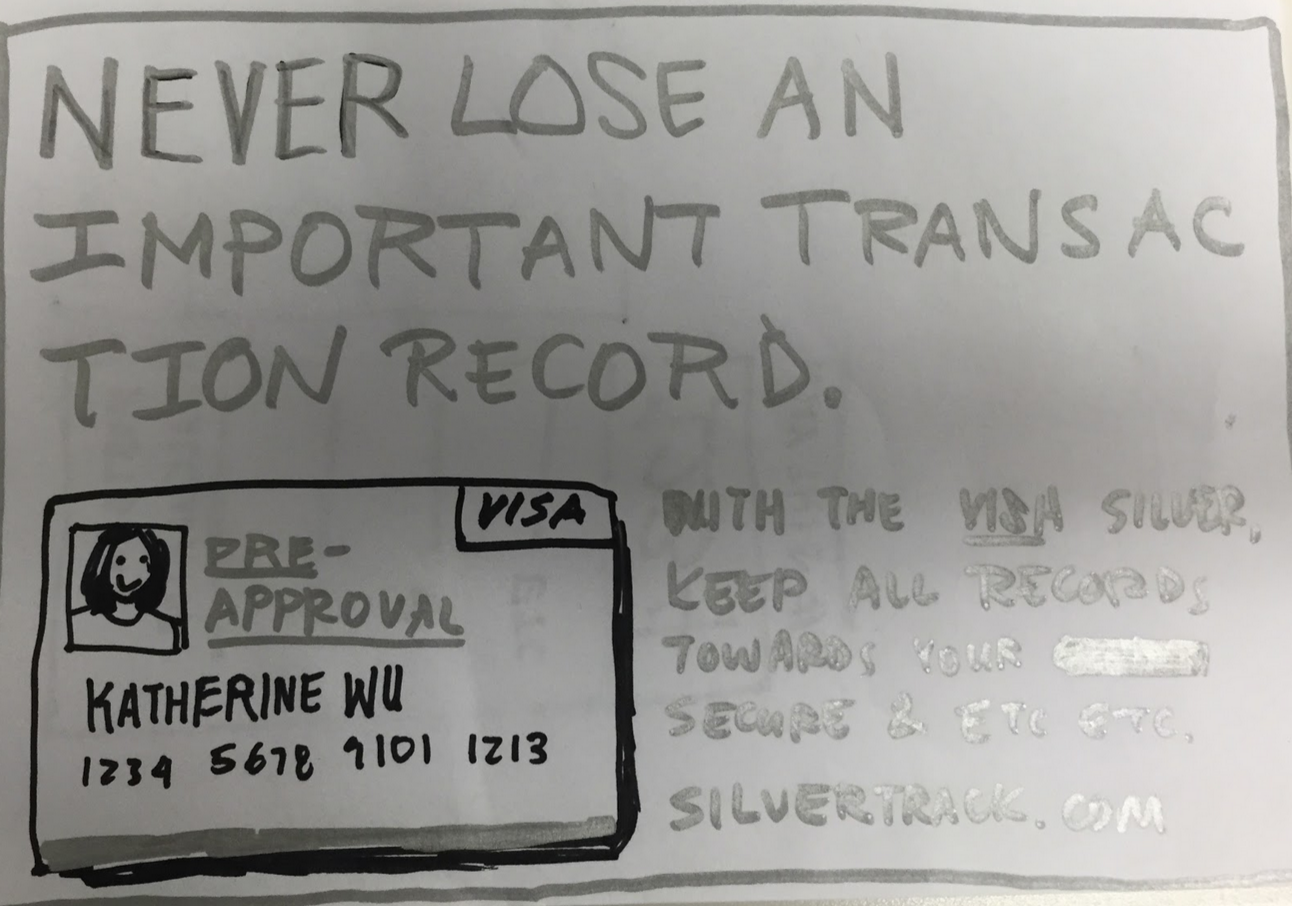 NEVER LOSE AN
IMPORTANT TRANSAC
TION RECORD.
VISA
PRE-
APPROVAL
KATHERINE WU
1234 5678 9101 1213
WITH THE VISA SILVER,
KEEP ALL RECORDS
TOWARDS YOUR
SECURE & ETC ETC.
SILVERTRACK.COM